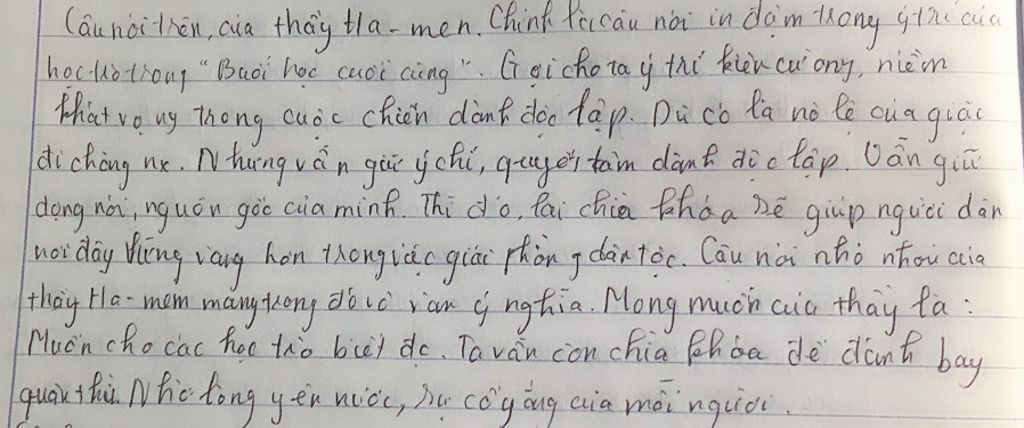 Câu nói trên, của thầy Ha-men. Chính là câu nói in đậm trong ý trí của
học trò trong "Buổi học cuối cùng". Gợi cho ta ý trí kiên cường, niềm
khát vọng trong cuộc chiến dành độc lập. Dù có là nô lệ của giặc
đi chăng nx. Nhưng vẫn giữ ý chí, quyết tâm dành độc lập. Vẫn giữ
dọng nói, nguồn gốc của mình. Thì đó, lại chìa khóa sẽ giúp người dân
nơi đây vững vàng hơn trong việc giải phóng dân tộc. Câu nói nhỏ nhoi của
thầy Ha-mem mang trong đó vô vàn ý nghĩa. Mong muốn của thầy là:
Muốn cho các học trò biết đc. Ta vẫn còn chìa khóa để đánh bay
quân thù. Nhờ lòng yên nước, sự cố gắng của mỗi người.